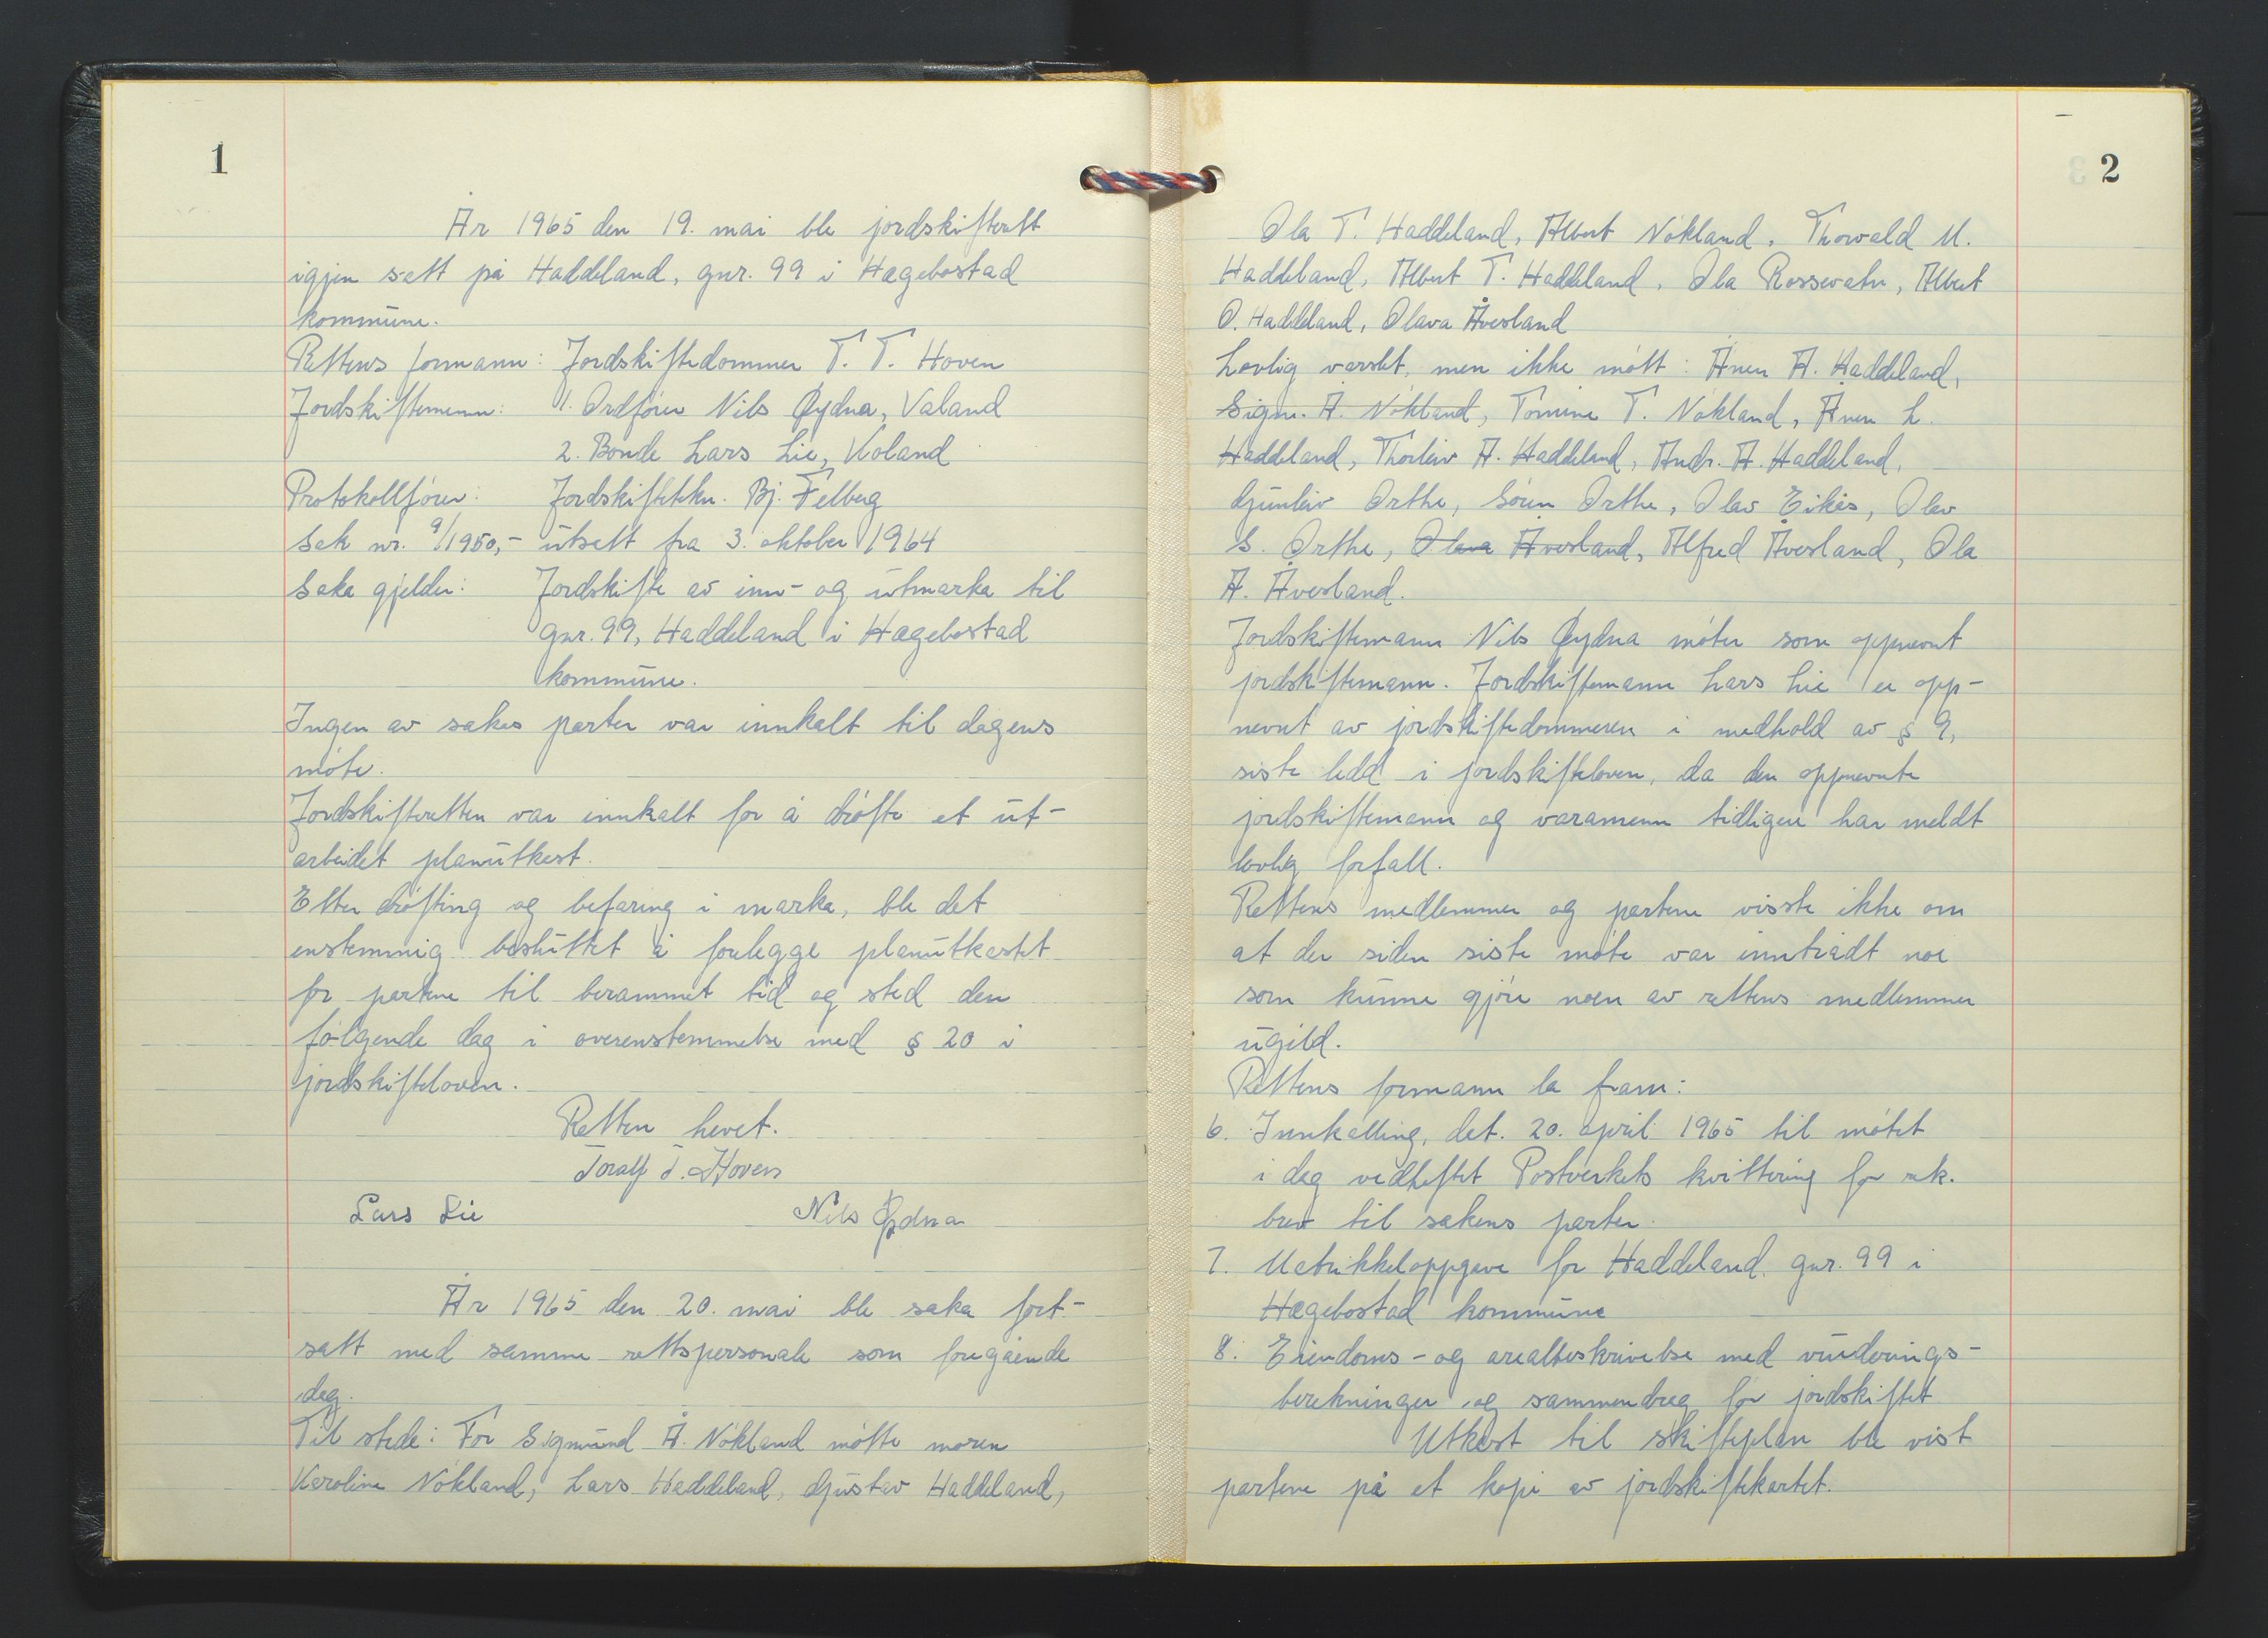 1
År 1965 den 19. mai ble jordskifterett
igjen satt på Haddeland, gnr. 99 i Hægebostad
kommune.
Rettens formann: Jordskiftedommer T. T. Hoven
Jordskiftemenn: 1. Ordfører Nils Øydna, Valand
2. Bonde Lars Lie, Koland
Protokollfører: Jordskiftetekn. Bj. Felberg
Sak nr. 9/1950,- utsatt fra 3. oktober 1964
Saka gjelder: Jordskifte av inn- og utmarka til
gnr. 99, Haddeland i Hægebostad
kommune.
Ingen av sakas parter var innkalt til dagens
møte.
Jordskifteretten var innkalt for å drøfte et ut-
arbeidet planutkast.
Etter drøfting og befaring i marka, ble det
enstemmig besluttet å forelegge planutkastet
for partene til berammet tid og sted den
følgende dag i overenstemmelse med § 20 i
jordskifteloven.
Retten hevet.
Toralf T. Hoven
Lars Lie Nils Øydna
År 1965 den 20. mai ble saka fort-
satt med samme rettspersonale som foregående
dag.
Til stede: For Sigmund Å. Nökland møtte moren
Karoline Nökland, Lars Haddeland, Gjustav Haddeland,
2
Ola T. Haddeland, Albert Nökland, Thorvald M.
Haddeland, Albert T. Haddeland, Ola Rossevatn, Albert
O. Haddeland, Olava Åvesland
Lovlig varslet, men ikke møtt: Ånen A. Haddeland,
Sigm. Å. Nökland, Tomine T. Nökland, Ånen L.
Haddeland, Thorleiv A. Haddeland, Andr. A. Haddeland,
Gjunleiv Orthe, Sören Orthe, Olav Eikås, Olav
S. Orthe, Olava Åvesland, Alfred Åvesland, Ola
A. Åvesland.
Jordskiftemann Nils Øydna møter som oppnevnt
jordskiftemann. Jordskiftemann Lars Lie er opp-
nevnt av jordskiftedommeren i medhold av § 9,
siste ledd i jordskifteloven, da den oppnevnte
jordskiftemann og varamenn tidligere har meldt
lovlig forfall.
Rettens medlemmer og partene visste ikke om
at der siden siste møte var inntrådt noe
som kunne gjøre noen av rettens medlemmer
ugild.
Rettens formann la fram:
6. Innkalling, dat. 20. april 1965 til møtet
i dag vedheftet Postverkets kvittering for rek.
brev til sakens parter.
7. Matrikkeloppgave for Haddeland, gnr. 99 i
Hægebostad kommune
8. Eiendoms- og arealbeskrivelse med vurderings-
berekninger og sammendrag for jordskiftet
Utkast til skifteplan ble vist
partene på et kopi av jordskiftekartet.